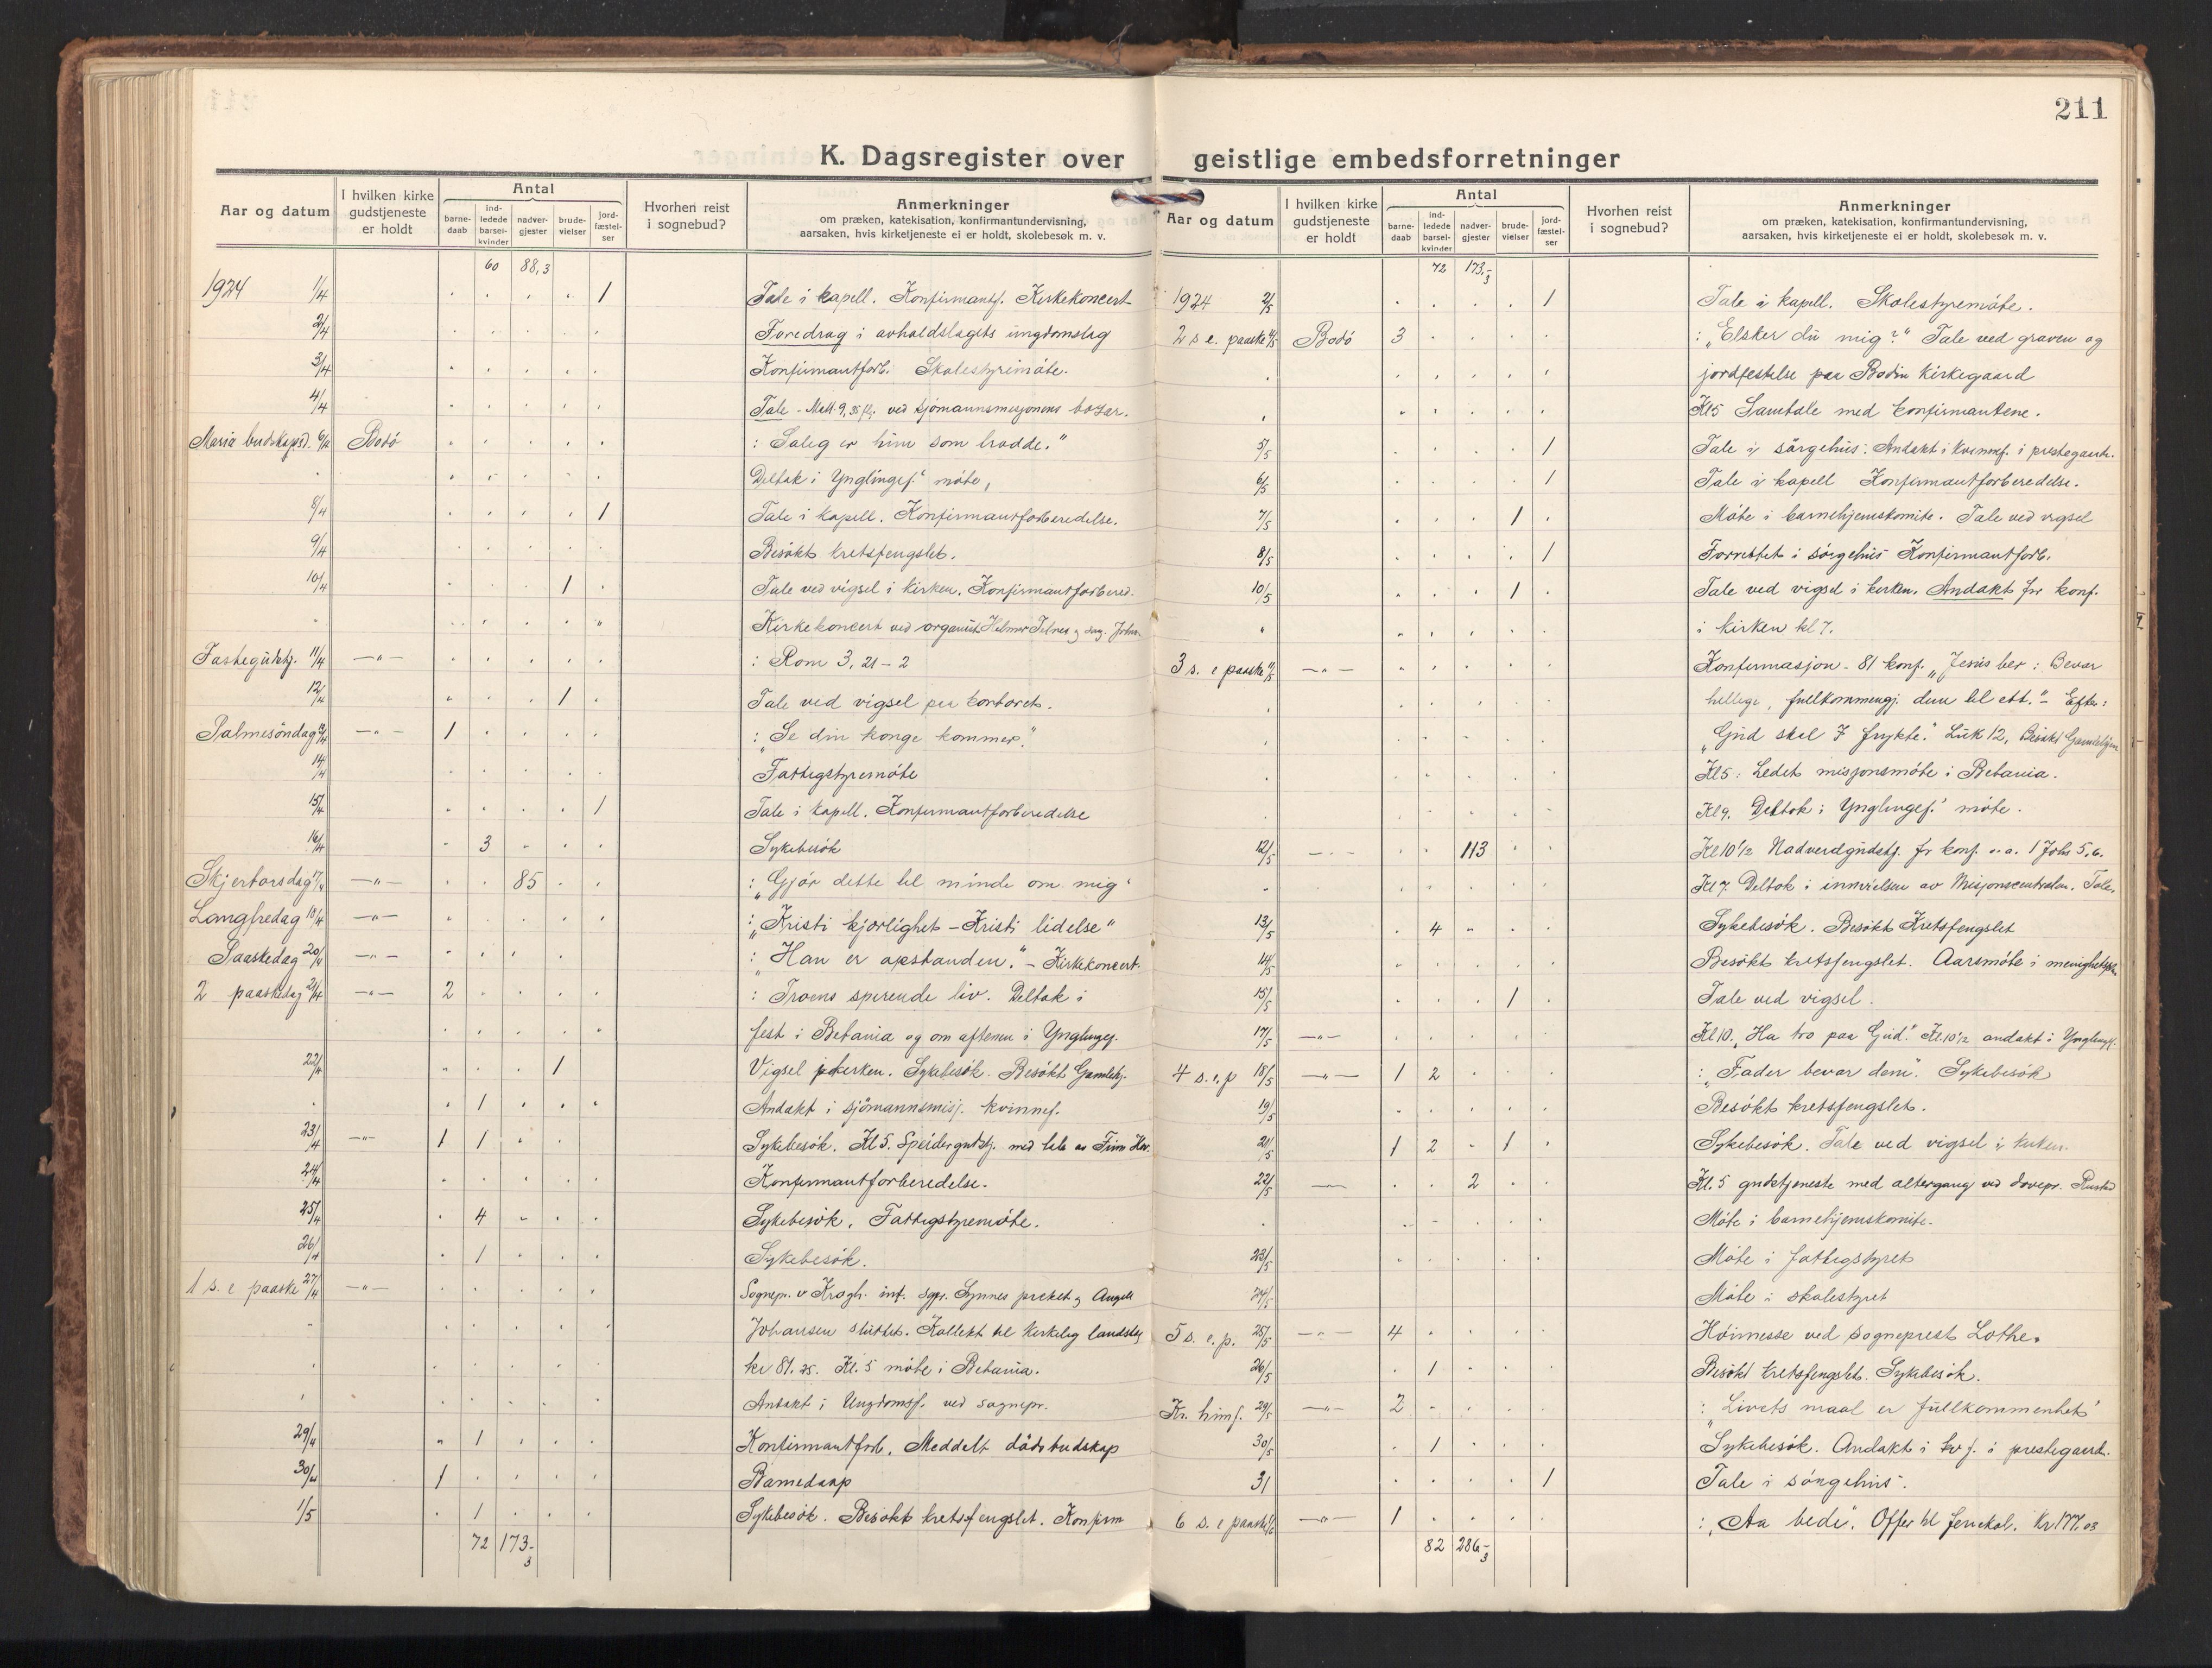 211
K. Dagsregister over geistlige embedsforretninger
Aar og datum
I hvilken kirke gudstjeneste er holdt
Antal
barne-daab
ind-ledede barsel-kvinder
nadver-gjester
brude-vielser
jord-fæstel-ser
Hvorhen reist i sognebud?
Anmerkninger
om præken, katekisation, konfirmantundervisning,
aarsaken, hvis kirketjeneste ei er holdt, skolebesøk m. v.
60 88,3
1924 1/4 1 Tale i kapell. Konfirmantf. Kirkekoncert
2/4 Foredrag i avholdslagets ungdomslag
3/4 Konfirmantforb. Skolestyremöte.
4/4 Tale - Matt. 9, 35 flg. ved sjömannsmisjonens basar.
Maria budskapsd. 6/4 Bodö : Saleg er him som trodde."
Deltok i Ynglingef.' möte,
8/4 1 Tale i kapell. Konfirmantforberedelse.
9/4 Besökt kretsfengslet.
10/4 1 Tale ved vigsel i kirken. Konfirmantforbered.
Kirkekoncert ved organist Helmer
Fastegudstj. 11/4 —"— : Rom 3, 21 - 2
12/4 1 Tale ved vigsel paa kontoret.
Palmesöndag 13/4 —"— 1 : "Se din konge kommer."
14/4 Fattigstyremöte
15/4 1 Tale i kapell. Konfirmantforberedelse
16/4 3 Sykebesök
Skjertorsdag 17/4 —"— 85 : "Gjör dette til minde om mig"
Langfredag 18/4 —"— : "Kristi kjærlighet - Kristi lidelse"
Paaskedag 20/4 —"— : "Han er opstanden." - Kirkekoncert.
2 paaskedag 21/4 —"— 2 : Troens spirende liv. Deltok i
fest i Betania og om aftenen i Ynglingef.
22/4 1 Vigsel i kirken. Sykebesök. Besökt Gamlehj.
1 Andakt i sjömannsmisj. kvinnef.
23/4 —"— 1 1 Sykebesök. Kl 5. Speidergudstj. med tale av Finn
24/4 Konfirmantforberedelse.
25/4 4 Sykebesök. Fattigstyremöte.
26/4 1 Sykebesök.
1 s. e paaske 27/4 —"— Sognepr. v Krogh. int. sgpr. Synnes preket og Angell
Johansen sluttet. Kollekt til kirkelig landslag
kr 81.25. Kl. 5 möte i Betania.
Andakt i Ungdomsf. ved sognepr.
29/4 1 Konfirmantforb. Meddelt dödsbudskap
30/4 1 Barnedaap
1/5 1 Sykebesök. Besökt kretsfengslet. Konfirm
72 173-3
Aar og datum
I hvilken kirke gudstjeneste er holdt
Antal
barne-daab
ind-ledede barsel-kvinder
nadver-gjester
brude-vielser
jord-fæstel-ser
Hvorhen reist i sognebud?
Anmerkninger
om præken, katekisation, konfirmantundervisning,
aarsaken, hvis kirketjeneste ei er holdt, skolebesøk m. v.
72 173,-3
1924 2/5 1 Tale i kapell. Skolestyremöte.
2 s e. paaske 4/5 Bodö 3 : "Elsker du mig?" Tale ved graven og
jordfestelse paa Bodin kirkegaard
Kl 5 Samtale med konfirmantene.
5/5 1 Tale i sörgehus. Andakt i kvinnef. i prestegaarden.
6/5 1 Tale i kapell Konfirmantforberedelse.
7/5 1 Möte i barnehjemskomite. Tale ved vigsel
8/5 1 Forrettet i sörgehus Konfirmantforb.
10/5 1 Tale ved vigsel i kirken. Andakt for konf.
i kirken kl 7.
3 s. e paaske 11/5 —"— Konfirmasjon - 81 konf. "Jesus ber: Bevar
hellige, fullkommengj. dem til ett." - Efter:
"Gud skal I frykte." Luk 12, Besökt Gamlehjem
Kl 5: Ledet misjonsmöte i Betania.
Kl 9. Deltok i Ynglingef.' möte.
12/5 —"— 113 Kl 10 1/2 Nadverdgudstj. for konf. o. a. 1 Johs 5,6.
Kl 7 Deltok i innvielsen av Misjonscentralen. Tale.
13/5 4 Sykebesök. Besökt Kretsfengslet
14/5 Besökt kretsfengslet. Aarsmöte i
15/5 1 Tale ved vigsel.
17/5 —"— Kl 10. "Ha tro paa Gud." Kl. 10 1/2 andakt i Ynglingef.
4 s. e. p 18/5 —"— 1 2 : "Fader bevar dem". Sykebesök
19/5 Besökt kretsfengslet.
21/5 1 2 1 Sykebesök. Tale ved vigsel i kirken.
22/5 —"— 2 Kl. 5 gudstjeneste med altergang ved dövepr. Rustad
Möte i barnehjemskomite.
23/5 Möte i fattigstyret
24/5 Möte i skolestyret
5 s. e. p. 25/5 —"— 4 Höimesse ved sogneprest Lothe.
26/5 1 Besökt kretsfengslet. Sykebesök.
Kr. himf. 29/5 —"— 2 : "Livets maal er fullkommenhet"
30/5 1 Sykebesök. Andakt i kv f. i prestegaard.
31 1 Tale i sörgehus.
6 s. e paaske 1/6 —"— 1 : "Aa bede". Offer til Kr 177.03
82 286,-3